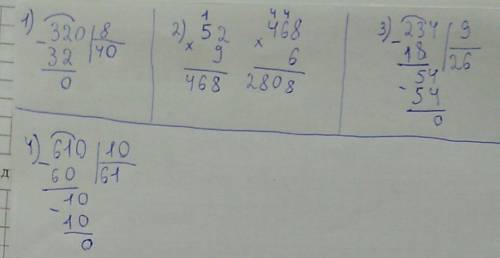 1) -320 | 8
32 | 40
0
2) 1
52
× 9
468
4 4
468
× 6
2808
3) -234 | 9
18 | 26
54
-54
0
4) -610 | 10
60 | 61
-10
10
0
д